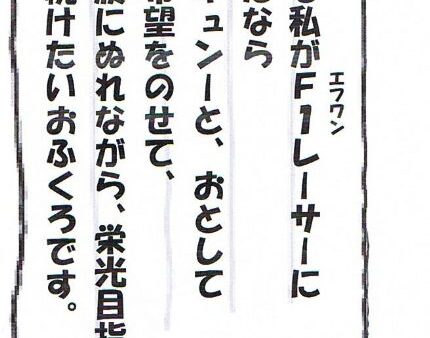 私がF1レーサーに
エフワン
なら
ュンーと、おとして
望をのせて、
にぬれながら、栄光目指
けたいおふくろです。